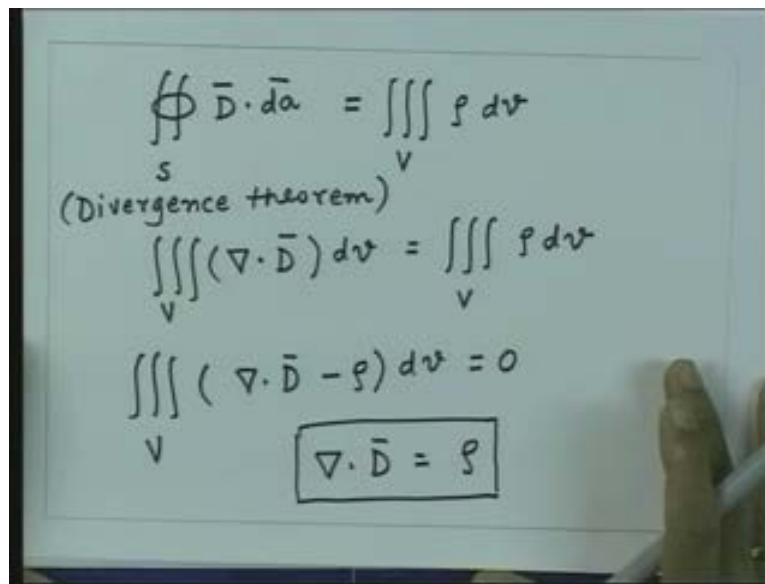 ∯ D̄·d̄a = ∭ ρ dv
S V
(Divergence theorem)
∭(∇·D̄) dv = ∭ ρ dv
V V
∭ (∇·D̄ - ρ) dv = 0
V
∇·D̄ = ρ